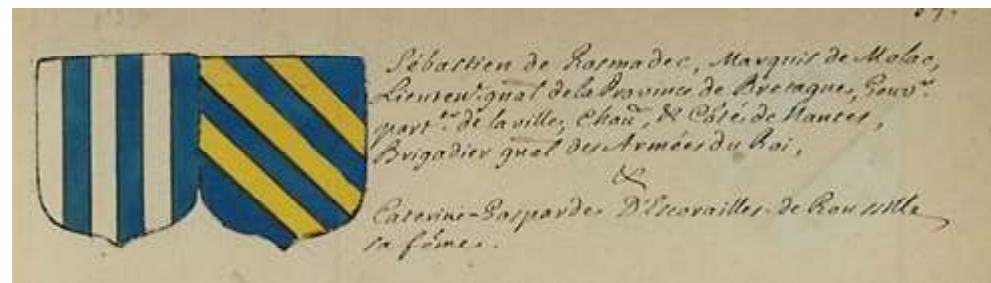 Sébastien de Rosmadec, Marquis de Molac,
Lieuten.t gñal de la Province de Bretagne, Gouv.r
part.er de la ville, Chaū, & Cõté de Nantes,
Brigadier gñal des Armées du Roi,
&
Caterine-Gasparde D'Escorailles de Roussille
sa fõme.